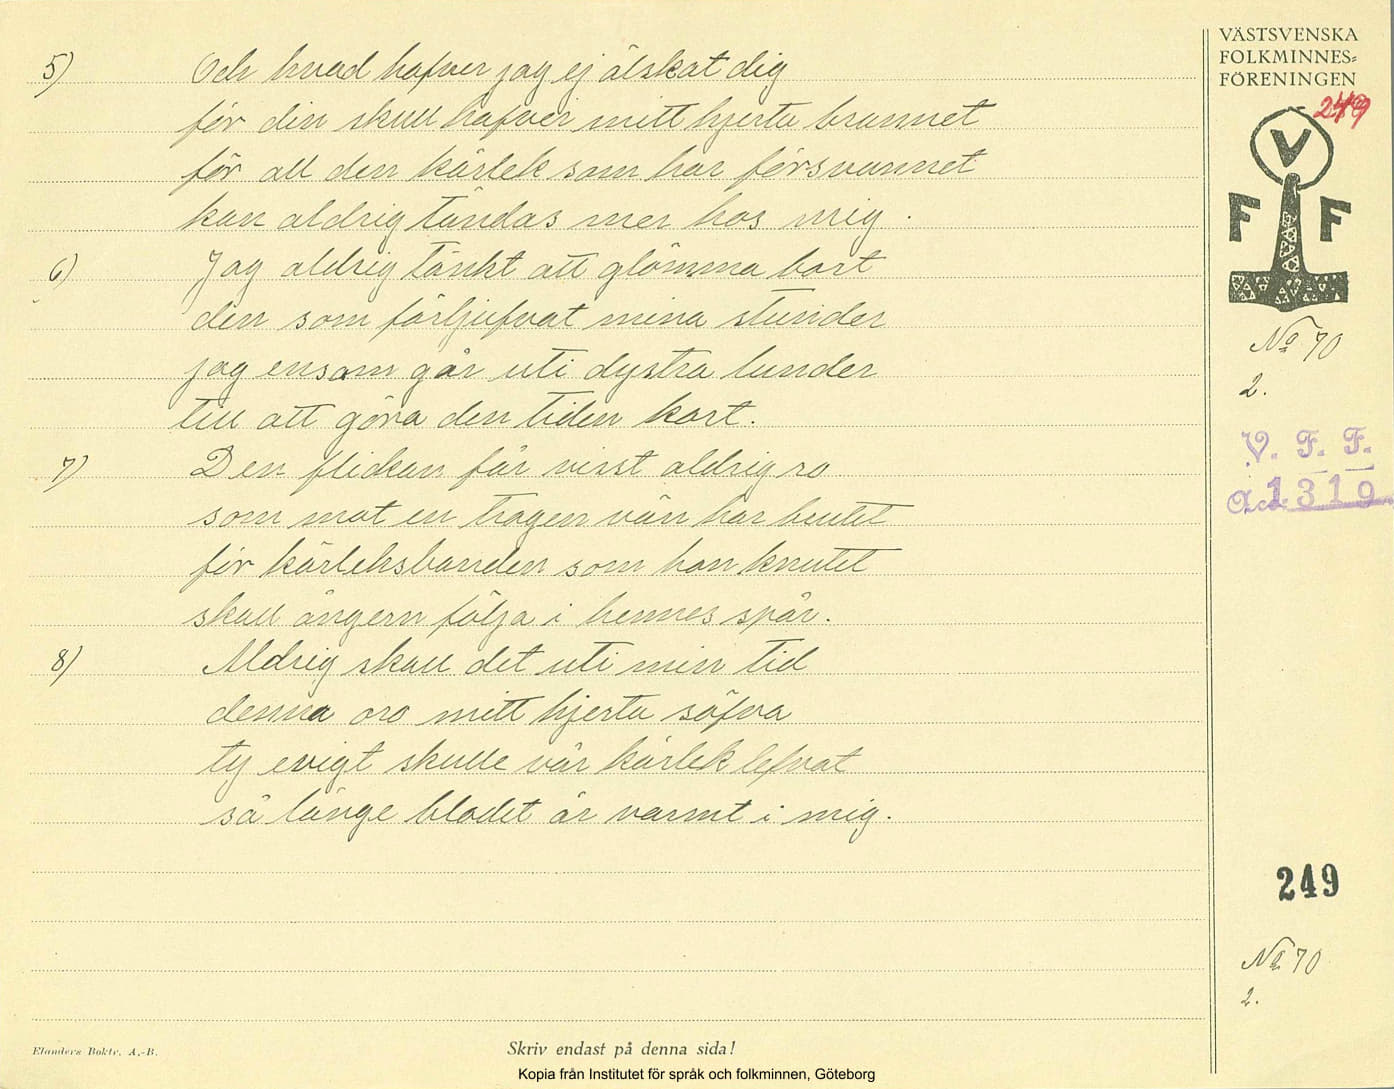 5) Och hvad hafver jag ej älskat dig
för din skull hafver mitt hjerta brunnet
för all den kärlek som har försvunnet
kan aldrig tändas mer hos mig.
6) Jag aldrig tänkt att glömma bort
den som förljufvat mina stunder
jag ensam går uti dystra lunder
till att göra den tiden kort.
7) Den flickan får visst aldrig ro
som mot en trogen vän har brutet
för kärleksbanden som hon knutet
skall ångern följa i hennes spår.
8) Aldrig skall det uti min tid
denna oro mitt hjerta söfva
ty evigt skulle vår kärlek lefvat
så länge blodet är varmt i mig.
Elanders Boktr. A.-B.
Skriv endast på denna sida!
Kopia från Institutet för språk och folkminnen, Göteborg
VÄSTSVENSKA
FOLKMINNES-
FÖRENINGEN
V
F F
No 70
2.
V. F. F.
Acc. 1319
249
No 70
2.